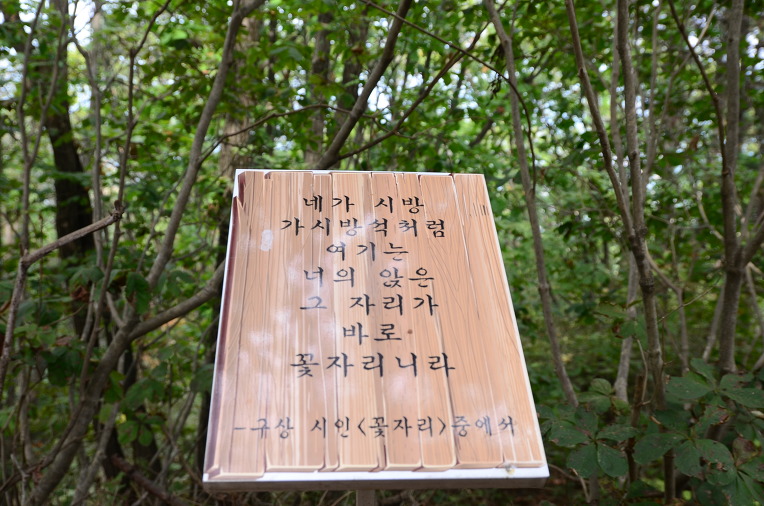 네가 시방
가시방석처럼
여기는
너의 앉은
그 자리가
바로
꽃자리니라
-구상 시인<꽃자리>중에서